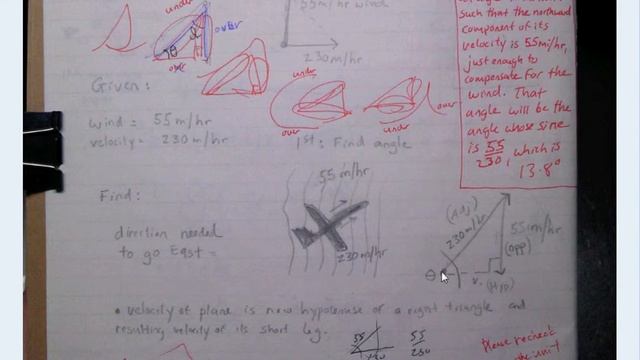 under
over
over
55m/hr wind
230m/hr
such that the northward
component of its
velocity is 55mi/hr,
just enough to
compensate for the
wind. That
angle will be the
angle whose sine
is 55/230, which is
13.8°
Given:
wind = 55 m/hr
velocity = 230 m/hr
under
over
under
over
1st: Find angle
Find:
direction needed
to go East =
55 m/hr
230m/hr
(Adj)
230m/hr
55mi/hr
(opp)
θ
v.
(Hyp)
• velocity of plane is now hypotenuse of a right triangle and
resulting velocity of its short leg.
55
230
55/230
Please recheck